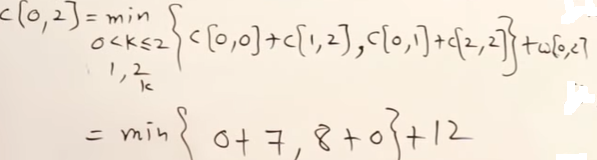 c[0,2] = min { c[0,0]+c[1,2], c[0,1]+c[2,2] } + w[0,2]
0<k≤2
1, 2
k
= min { 0+7, 8+0 } + 12